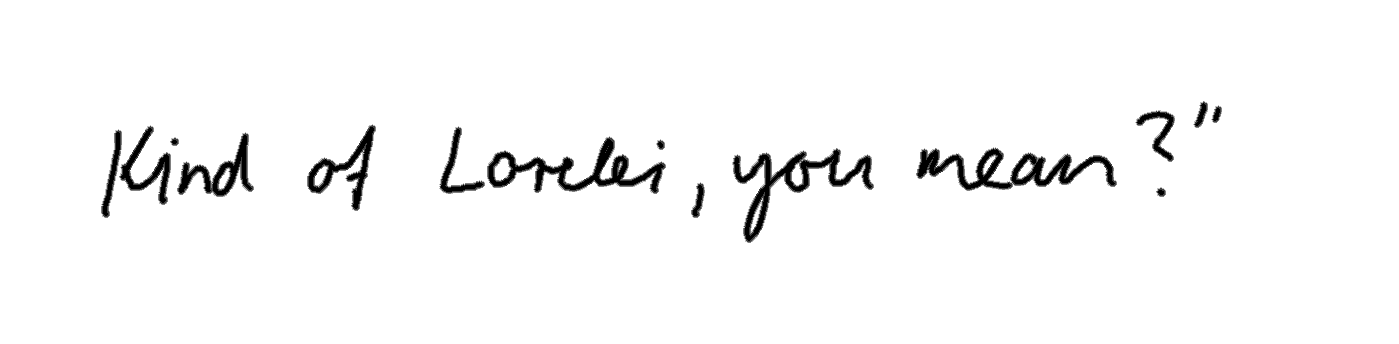 Kind of Lorelei, you mean?"